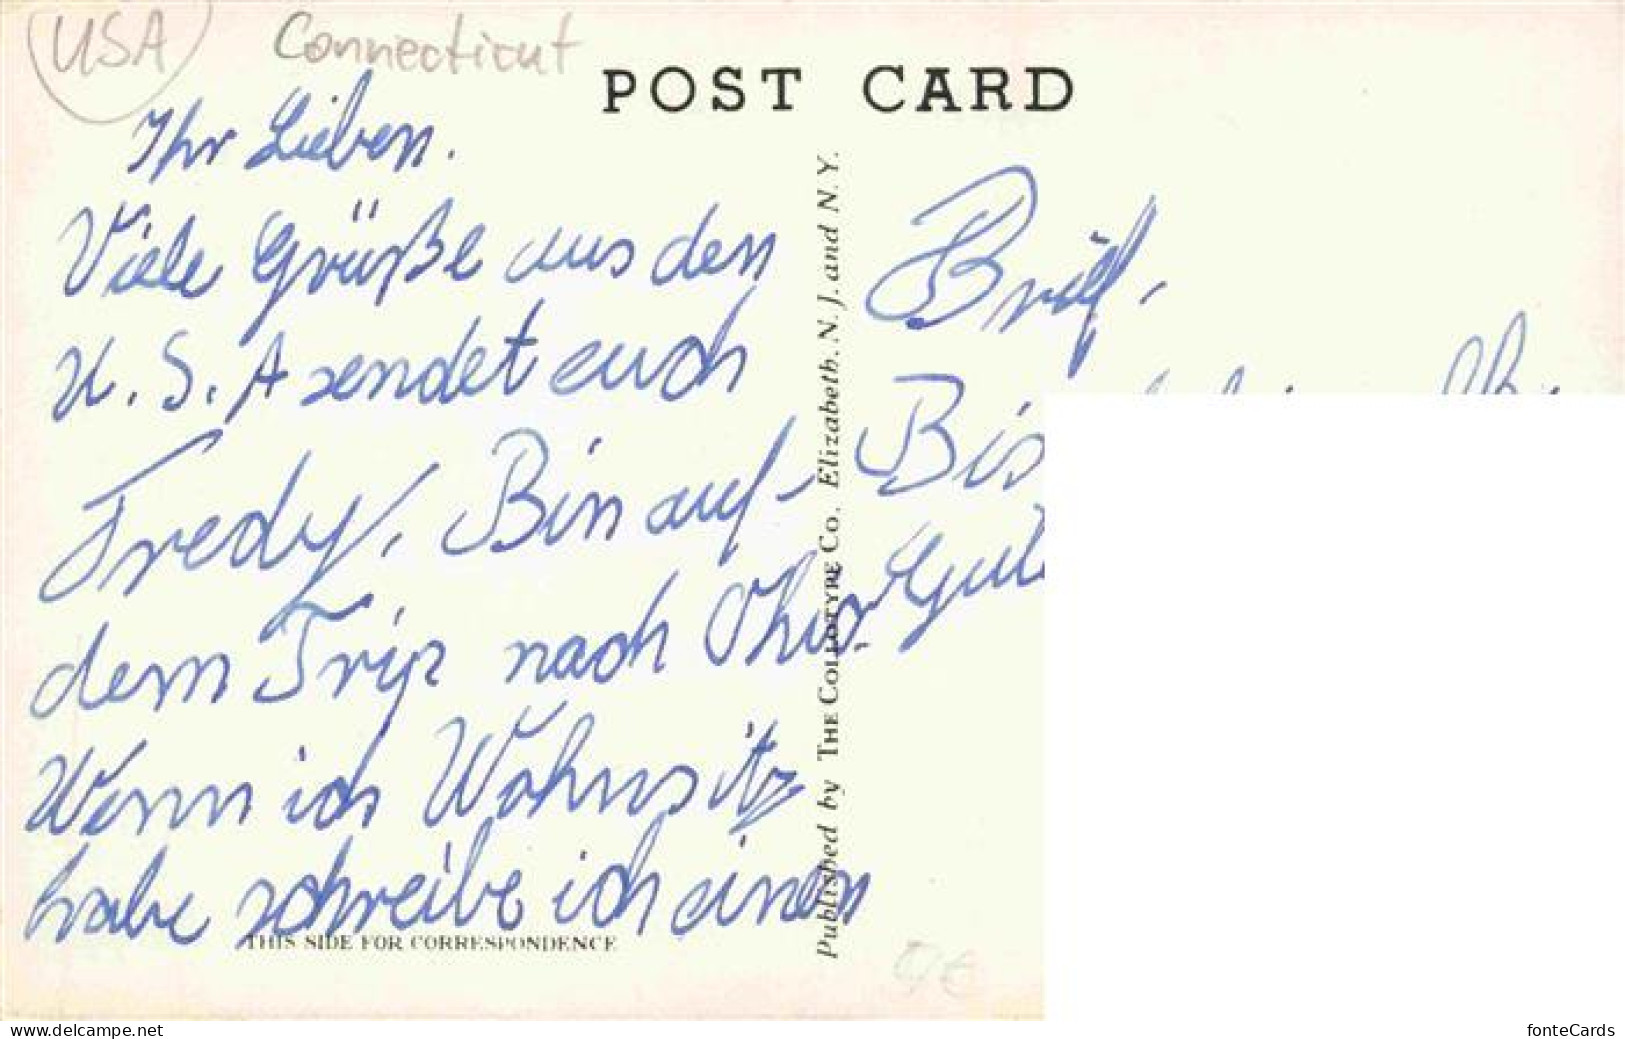 USA Connecticut
POST CARD
Ihr Lieben.
Viele Grüße aus den
U.S.A sendet euch
Fredy. Bin auf
dem Trip nach Ohio.
Wenn ich Wohnsitz
habe schreibe ich einen
THIS SIDE FOR CORRESPONDENCE
Published by THE COLLOTYPE CO. Elizabeth, N. J. and N. Y.
Brief.
Bis
delcampe.net
fonteCards